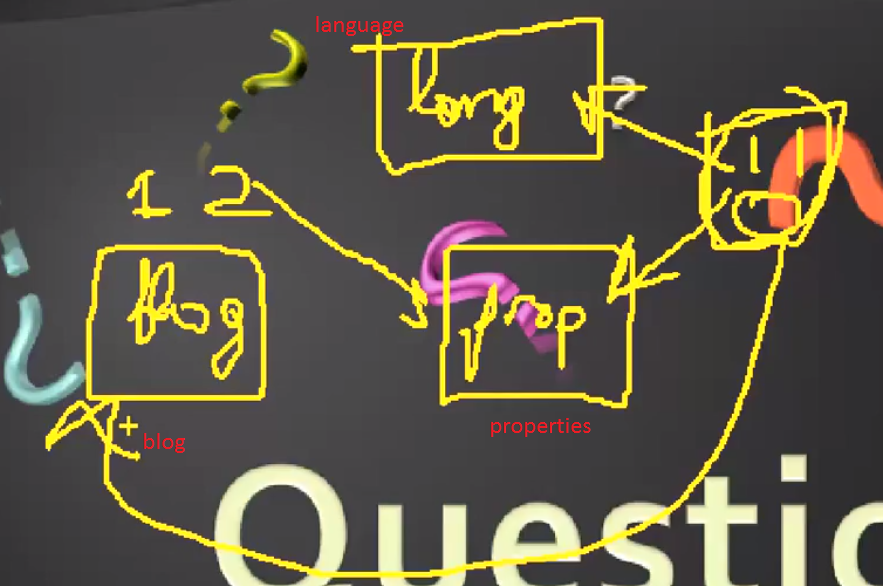 language
lang
?
1 2
blog
prop
+
blog
properties
Questio